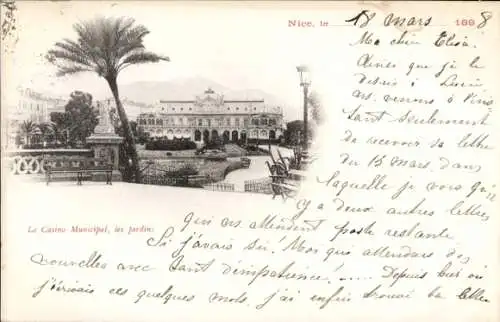 Nice, le 18 mars 1898
Ma chère Elisa,
que je le
à
à
tant seulement
de recevoir sa lettre
du 15 mars. Dans
laquelle je vois qu'il
y a deux autres lettres
qui attendent poste restante
Si j'avais su. Moi qui attendais des
nouvelles avec tant d'impatience!.... Depuis hier où
j'écrivais ces quelques mots, j'ai enfin trouvé ta lettre
Le Casino Municipal, les jardins